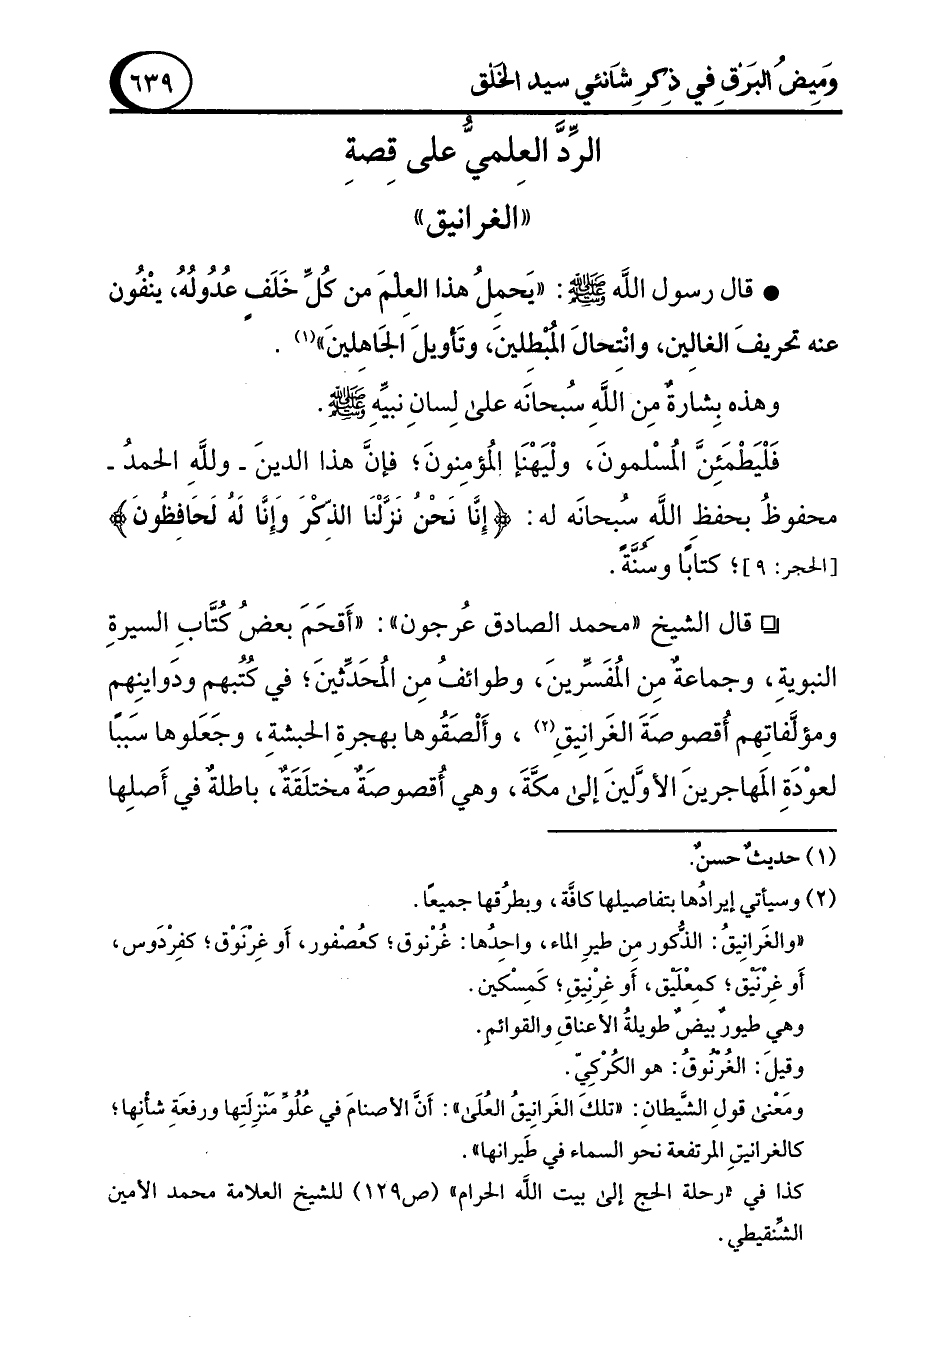 وَمِيضُ البَرْقِ في ذِكرِ شَانئي سيد الخَلْق ٦٣٩
الرِّدُّ العِلميُّ على قِصةِ
«الغرانيق»
● قال رسول اللَّه ﷺ: «يَحملُ هذا العِلمَ من كلِّ خَلَفٍ عُدُولُهُ، ينْفُون
عنه تحريفَ الغالين، وانْتحالَ المُبْطلينَ، وتَأويلَ الجَاهلينَ»(١) .
وهذه بِشارةٌ من اللَّه سُبحانَه على لسانِ نبيِّهِ ﷺ.
فَلْيَطْمَئِنَّ المُسْلمونَ، ولْيَهْنَإِ المُؤمنون؛ فإنَّ هذا الدينَ ـ وللَّهِ الحمدُ ـ
محفوظٌ بحفظِ اللَّهِ سُبحانَه له: ﴿إِنَّا نَحْنُ نَزَّلْنَا الذِّكْرَ وَإِنَّا لَهُ لَحَافِظُونَ﴾
[الحجر: ٩]؛ كتابًا وسُنَّةً.
❏ قال الشيخ «محمد الصادق عُرجون»: «أَقحَمَ بعضُ كُتَّابِ السيرةِ
النبويةِ، وجماعةٌ من المُفَسِّرينَ، وطوائفُ من المُحَدِّثينَ؛ في كتُبهم ودَواينِهم
ومؤلَّفاتِهم أُقصوصةَ الغَرانيقِ(٢) ، وأَلْصَقُوها بهجرةِ الحبشةِ، وجَعَلوها سَببًا
لعوْدَةِ المُهاجرينَ الأوَّلينَ إلى مكَّةَ، وهي أُقصوصَةٌ مختلَقَةٌ، باطلةٌ في أَصلِها
(١) حديثٌ حسنٌ.
(٢) وسيأتي إيرادُها بتفاصيلها كافَّة، وبطرُقها جميعًا.
«والغَرانيقُ: الذُّكور من طير الماء، واحِدُها: غُرْنوق؛ كعُصْفور، أو غِرْنَوْق؛ كفِرْدَوس،
أو غِرْنَيْق؛ كمِعْلَيْق، أو غِرْنِيق؛ كَمِسْكين.
وهي طيورٌ بيضٌ طويلةُ الأعناقِ والقوائمِ.
وقيلَ: الغُرْنُوقُ: هو الكُرْكيّ.
ومَعْنى قولِ الشَّيطان: «تلكَ الغَرانيقُ العُلَى»: أنَّ الأصنامَ في عُلُوِّ مَنْزِلَتِها ورفعةِ شأنِها؛
كالغرانيقِ المرتفعة نحو السماء في طَيرانها».
كذا في «رحلة الحج إلى بيت اللَّه الحرام» (ص١٢٩) للشيخ العلامة محمد الأمين
الشِّنقيطي.